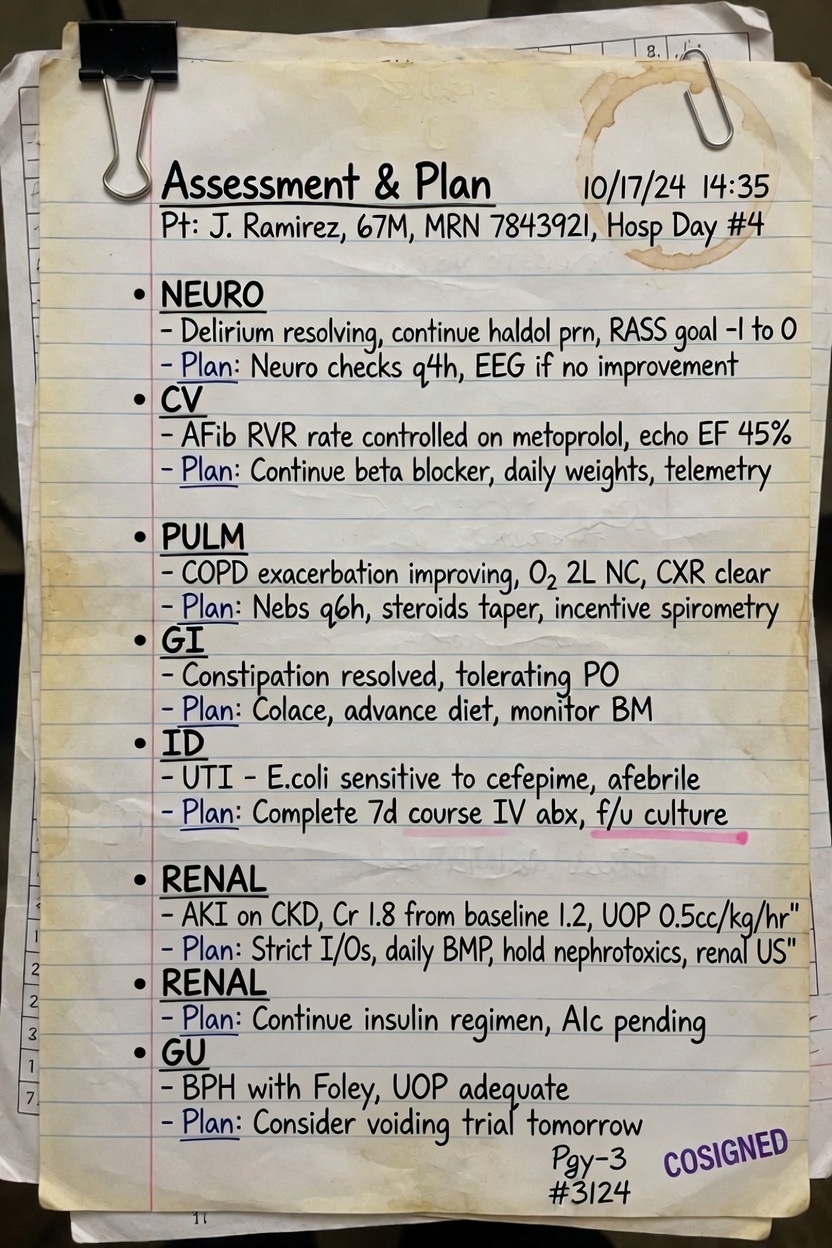 8.
Assessment & Plan 10/17/24 14:35
Pt: J. Ramirez, 67M, MRN 7843921, Hosp Day #4
• NEURO
- Delirium resolving, continue haldol prn, RASS goal -1 to 0
- Plan: Neuro checks q4h, EEG if no improvement
• CV
- AFib RVR rate controlled on metoprolol, echo EF 45%
- Plan: Continue beta blocker, daily weights, telemetry
• PULM
- COPD exacerbation improving, O₂ 2L NC, CXR clear
- Plan: Nebs q6h, steroids taper, incentive spirometry
• GI
- Constipation resolved, tolerating PO
- Plan: Colace, advance diet, monitor BM
• ID
- UTI - E.coli sensitive to cefepime, afebrile
- Plan: Complete 7d course IV abx, f/u culture
• RENAL
- AKI on CKD, Cr 1.8 from baseline 1.2, UOP 0.5cc/kg/hr"
- Plan: Strict I/Os, daily BMP, hold nephrotoxics, renal US"
• RENAL
- Plan: Continue insulin regimen, A1c pending
• GU
- BPH with Foley, UOP adequate
- Plan: Consider voiding trial tomorrow
Pgy-3
#3124
COSIGNED